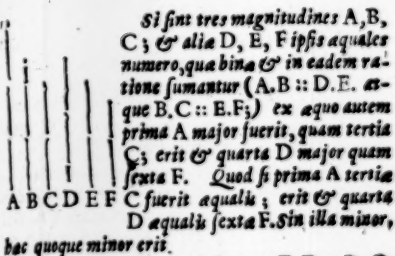 Si sint tres magnitudines A, B,
C; & aliæ D, E, F ipsis æquales
numero, quæ binæ & in eadem ra-
tione sumantur (A.B :: D.E. at-
que B.C :: E.F;) ex æquo autem
prima A major fuerit, quam tertia
C; erit & quarta D major quam
sexta F. Quod si prima A tertiæ
A B C D E F C fuerit æqualis; erit & quarta
D æqualis sextæ F. Sin illa minor,
hæc quoque minor erit.